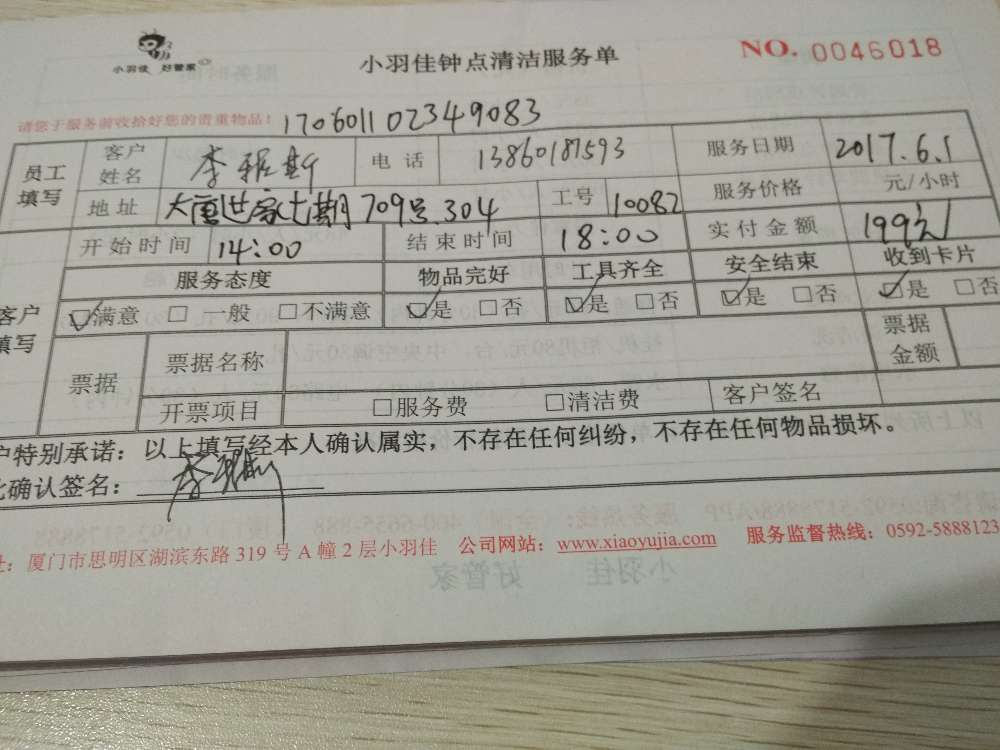 小羽佳 好管家
小羽佳钟点清洁服务单
NO. 0046018
请您于服务前收拾好您的贵重物品！ 170601102349083
员工填写 客户姓名 李 斯 电话 13860187593 服务日期 2017.6.1
地址 大唐世家七期709号.304 工号 10082 服务价格 元/小时
开始时间 14:00 结束时间 18:00 实付金额 199元
客户填写 服务态度 物品完好 工具齐全 安全结束 收到卡片
☑满意 □ 一般 □不满意 ☑是 □否 ☑是 □否 ☑是 □否 ☑是 □否
票据 票据名称 票据金额
开票项目 □服务费 □清洁费 客户签名
户特别承诺：以上填写经本人确认属实，不存在任何纠纷，不存在任何物品损坏。
此确认签名：
址：厦门市思明区湖滨东路 319 号 A 幢 2 层小羽佳 公司网站：www.xiaoyujia.com 服务监督热线：0592-5888123